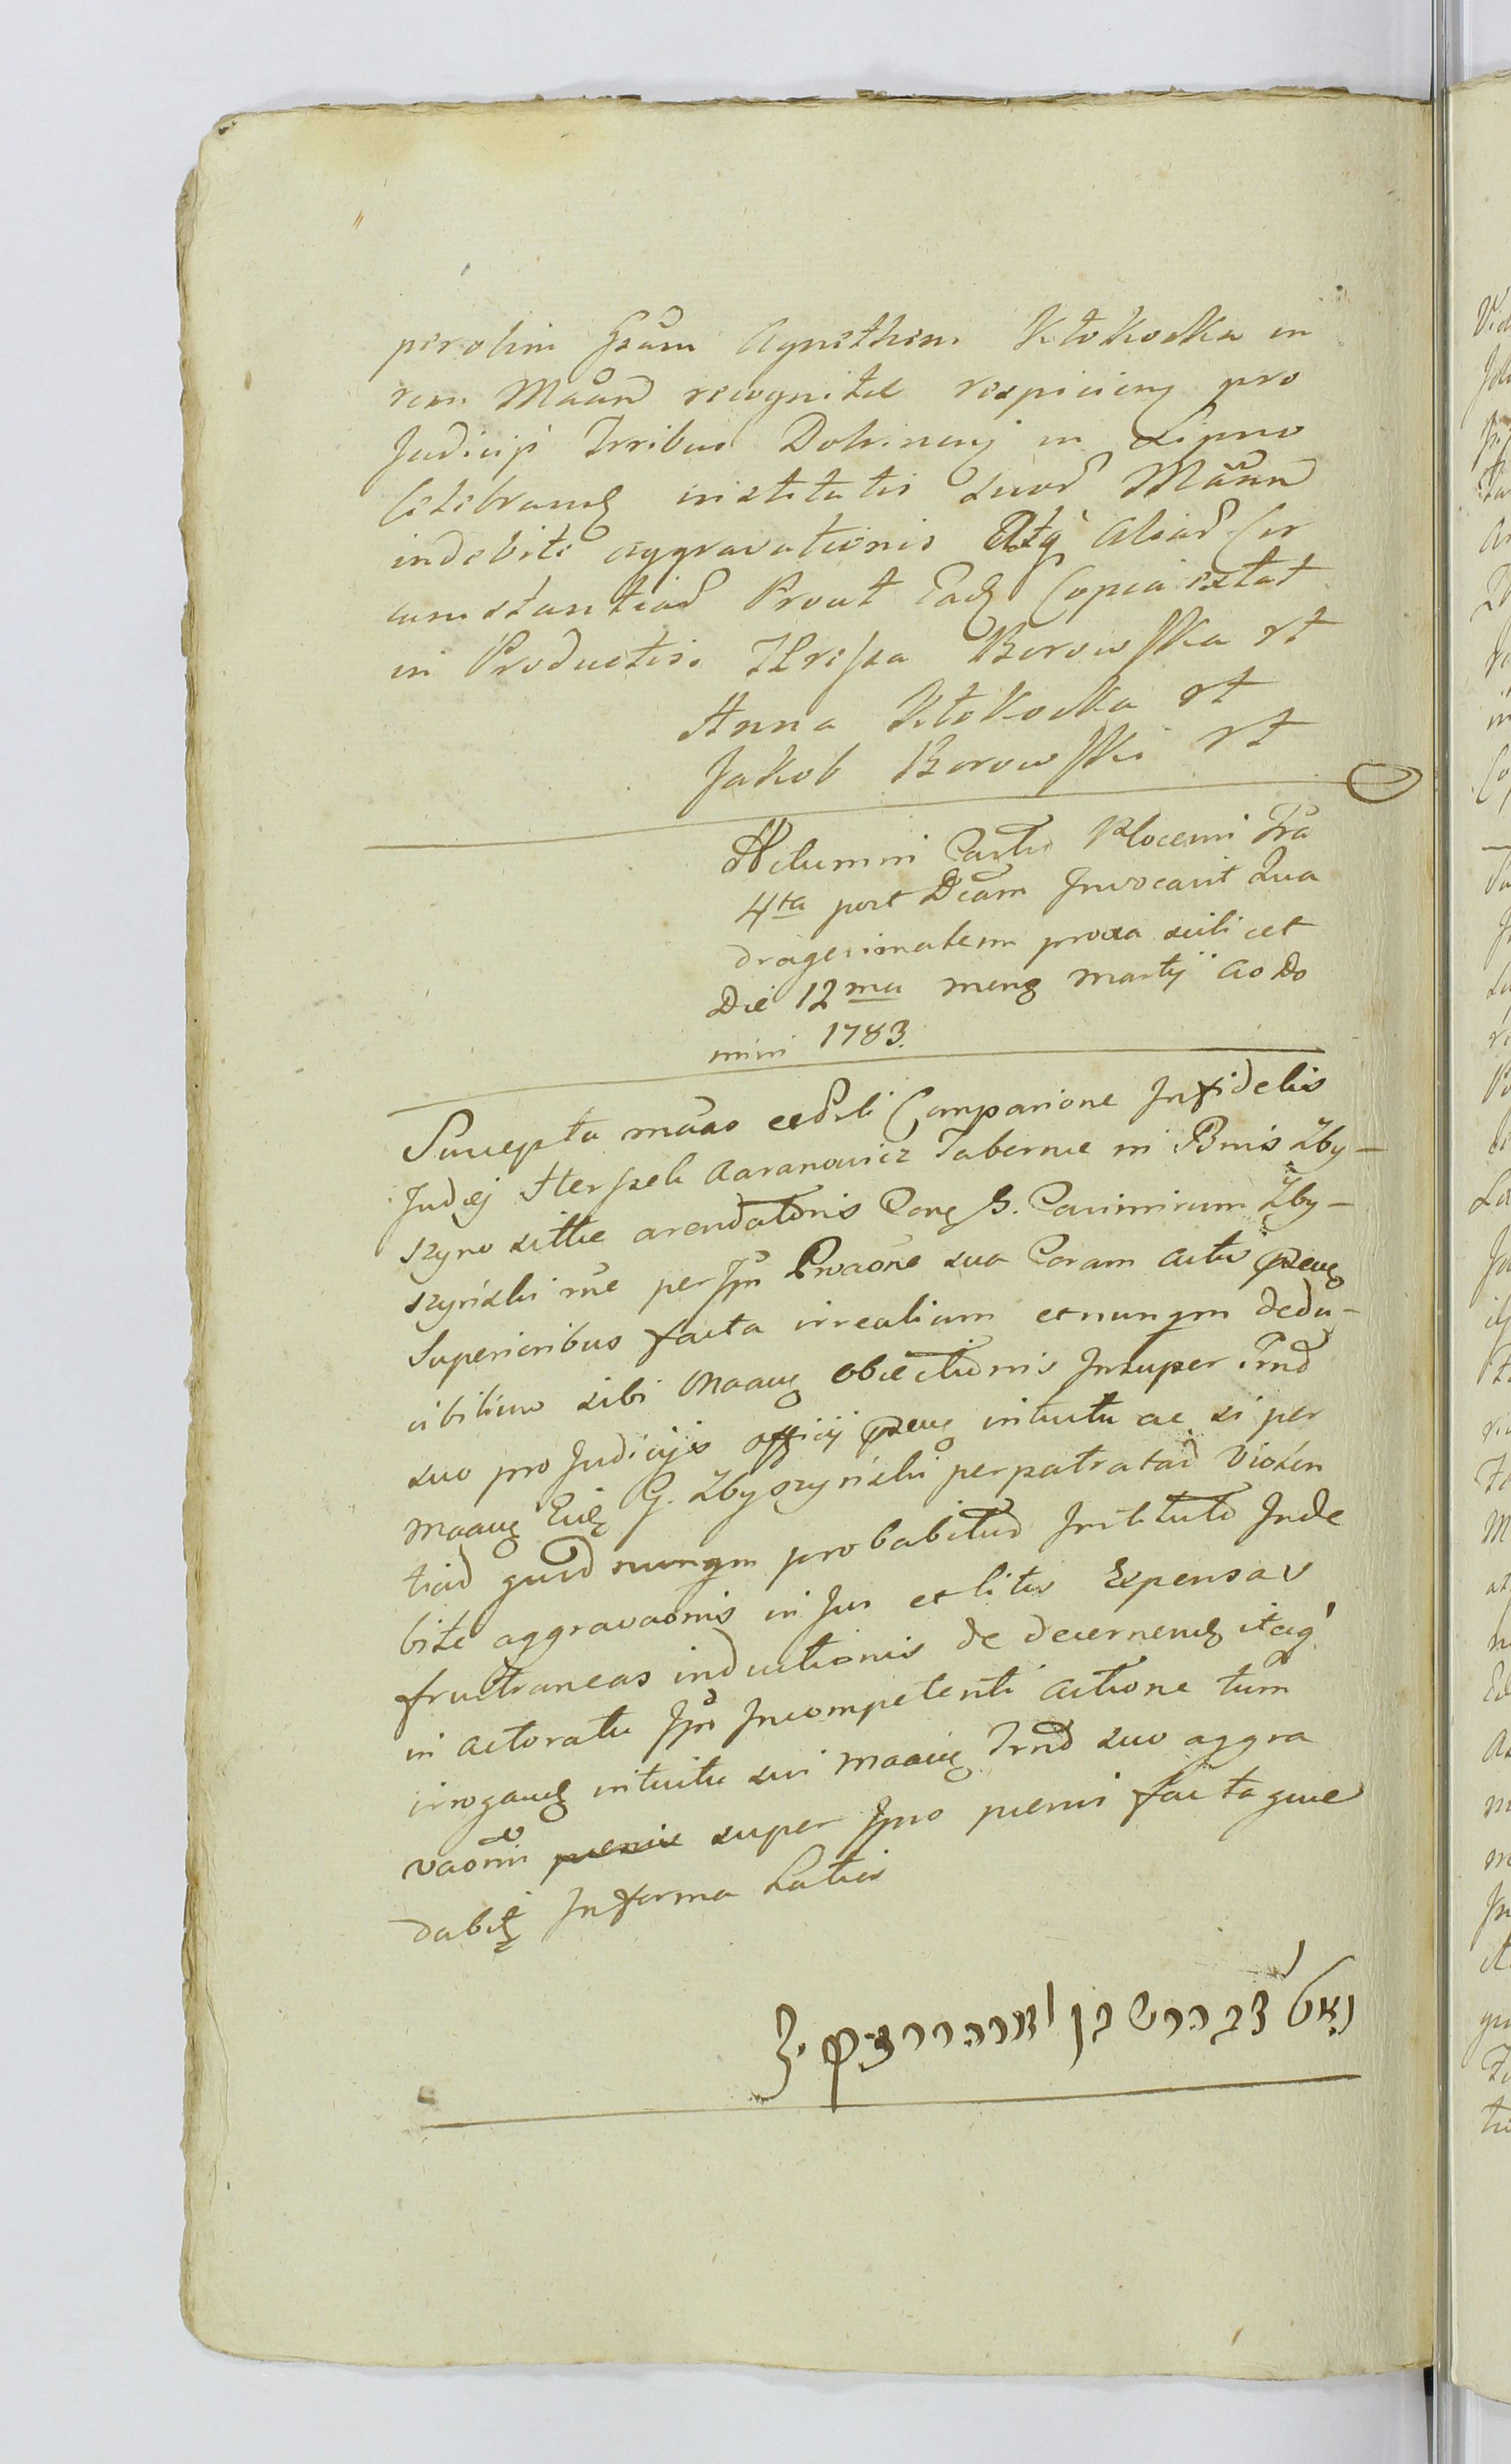 perolim Gsam Agnethem Kłokocka in
rem Maand recognitae respiciens pro
Judicijs Trribus Dobrinensi in Lipno
Celebrands institutis suos Maand
indebite aggravationis Atq Alias Cir
cumstantias Prout Eads Copia extat
in Productis. Theresa Borowska rt
Anna Kłokocka rt
Jakob Borowski rt
Actum in Castro Plocensi Fra
4ta post Dcam Invocavit Qua
dragesimalem proxa scilicet
Die 12ma mens Martij Ao Do
mini 1783.
Suscepta maao cedili Comparione Infidelis
Judej Herszek Aaronowicz Tabernae in Bnis Zby-
szyno sittae arendatoris Cong G. Casimirum Zby-
szynski rne per Ipm Prvaone sua Coram actis psens
Superioribus facta irrealium et nunqm dedu-
cibilium sibi Maans obiectionis Insuper Trnd
suo pro Judicijs officij psens intuitu ac si per
Maans Eius G. Zbyszynski perpatratas Violen
tias quod nunqm probabitur Institutis Inde
bite aggravaonis in Jus et litis Expensas
frustraneas inductionis de decernends itaq
in actoratu Ipso Incompetenti actione tum
irrogands intuitu sui Maans Trnd suo aggra
vaonis super Ipso penis factaque
dabit In forma Latius
נאט צבי הרש בן אהרן